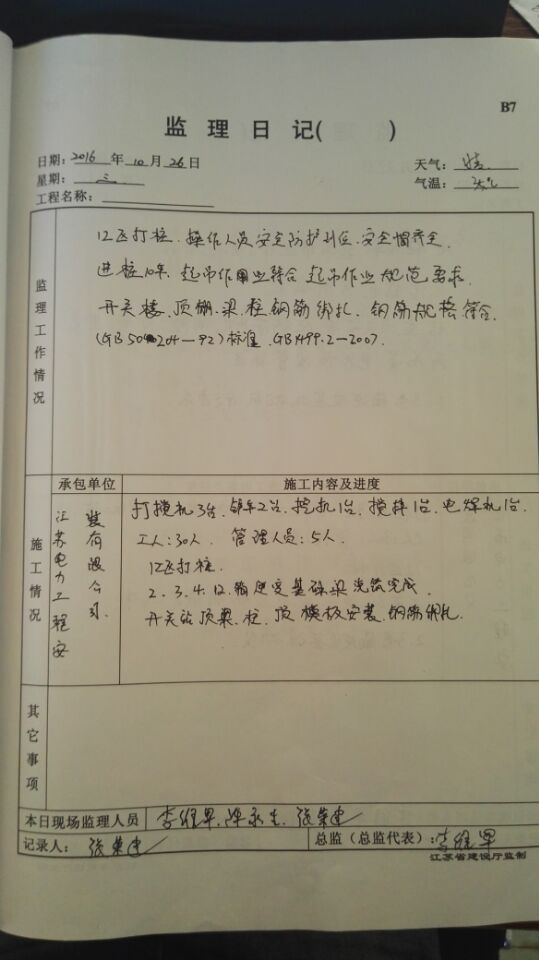 B7
监 理 日 记( )
日期：2016 年 10 月 26 日
天气：晴
星期：三
气温：
工程名称：
监理工作情况
12区打桩．操作人员安全防护到位．安全帽齐全．
进桩10车．起吊作业符合起吊作业规范要求．
开关楼．顶棚．梁．柱钢筋绑扎．钢筋规格符合．
(GB50204—92)标准．GB1499.2—2007．
施工情况
承包单位
施工内容及进度
江苏电力工程安
装有限公司．
打桩机3台．领车2台．挖机1台．搅拌1台．电焊机1台．
工人：30人． 管理人员：5人．
12区打桩．
2．3．4．12．箱逆变基础梁浇筑完成．
开关站顶梁．柱．顶模板安装．钢筋绑扎．
其它事项
本日现场监理人员
李维早．陈永生．张荣建
记录人：张荣建
总监（总监代表）：李维早
江苏省建设厅监制